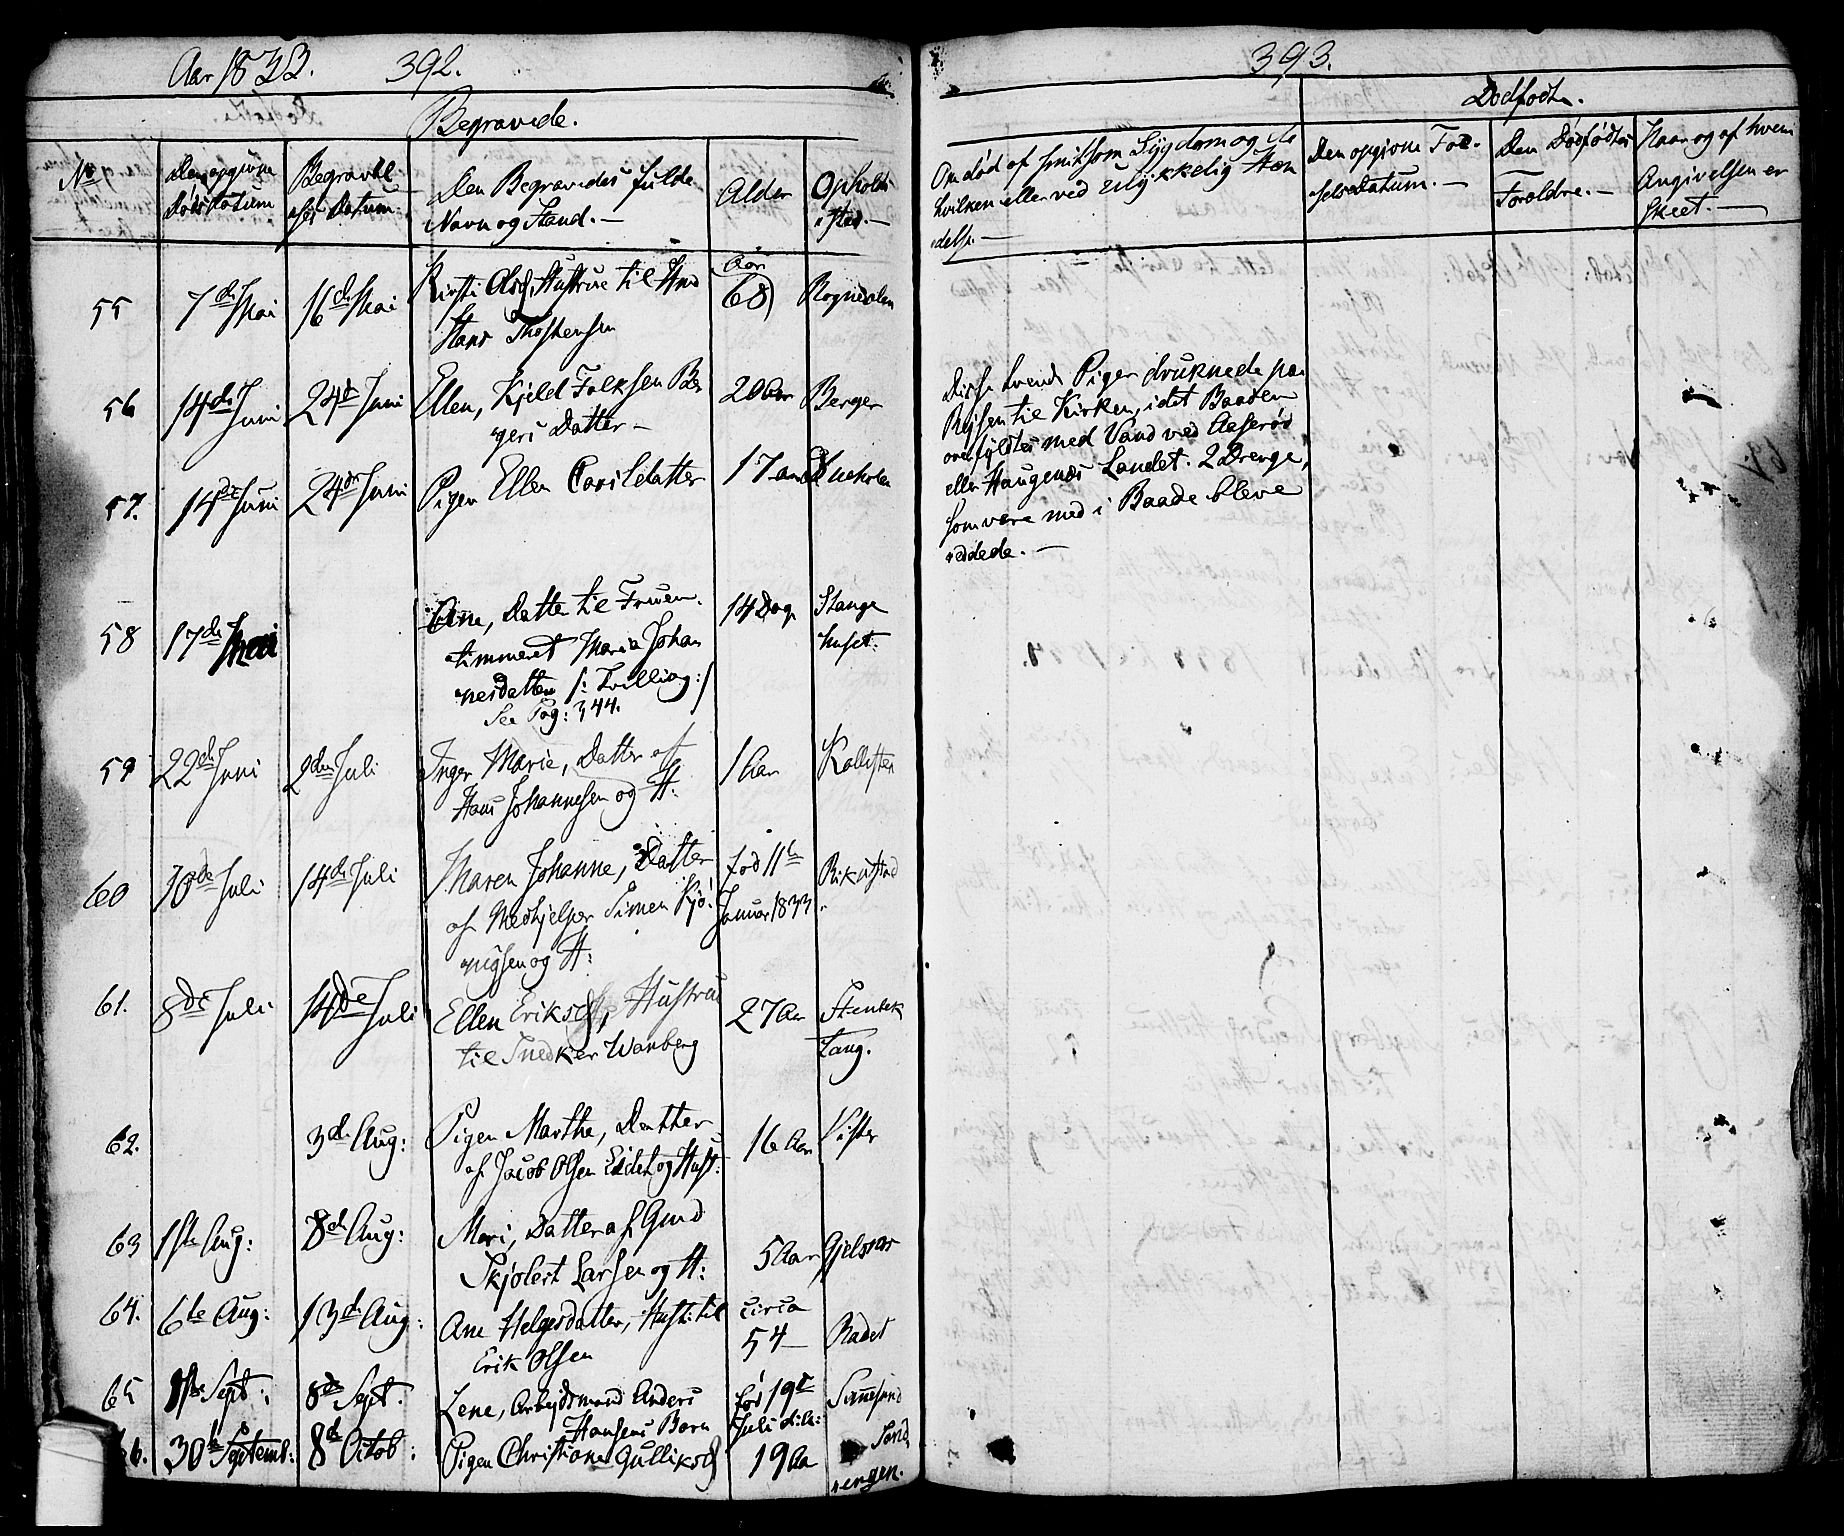 Aar 1833. 392.
Begravede.
No
Den opgivne
Dødsdatum
Begravel
ses Datum.
Den Begravedes fulde
Navn og Stand. —
Alder
Opholds
sted. —
55 7de Mai 16de Mai Kirsti Olsd, Hustrue til
Hans Thorstensen
Aar
68 Rognedalen
56 14de Juni 24de Juni Ellen, Kjeld Falksen Ber
gers Datter —
20 Aar Berger
57. 14de Juni 24de Juni Pigen Ellen Carilsdatter 17 aar
58 17de Mai Ane, Datter til Fruen
timmeret Maria Johan
nesdatter /: Tvilling :/
See Pag: 344.
14 Dage Stange
huset.
59 22de Juni 2den Juli Inger Marie, Datter af
Hans Johannesen og H:
1 Aar
60 10de Juli 14de Juli Maren Johanne, Datter
af Medhjelper Simen
og H:
fød 11te
Januar 1833
61. 8de Juli 14de Juli Ellen Eriksd, Hustrue
til Snedker Wanberg
27 Aar
Tang.
62. 3de Aug: Pigen Marthe, Datter
af Jacob Olsen Eidet og Hust:
16 Aar
63 1ste Aug: 8de Aug: Mari, Datter af Gmd
Skjølert Larsen og H:
5 Aar
64. 6te Aug: 13de Aug: Ane Helgesdatter, Hust: til
Erik Olsen
circa
54 — Radet
65 1ste Sept: 8de Sept: Lene, Arbejdsmand Anders
Hansens Barn
fød 19de
Juli
66. 30te Septemb: 8de Octob: Pigen Christiane Gulliksd 19 Aar
393.
Dødfødte.
Om død af hvilken Sygdom og de
hvilken eller ved ulykkelig Hæn
delse. —
Den opgivne Fød-
selsDatum. —
Den Dødfødtes
Forældre. —
Naar og af hvem
Angivelsen er
skeet. —
Disse tvende Piger druknede paa
Rejsen til Kirken, idet Baaden
overfyldtes med Vand ved
eller Haugenæs Landet. 2 Drenge,
som vare med i Baade bleve
reddede. —